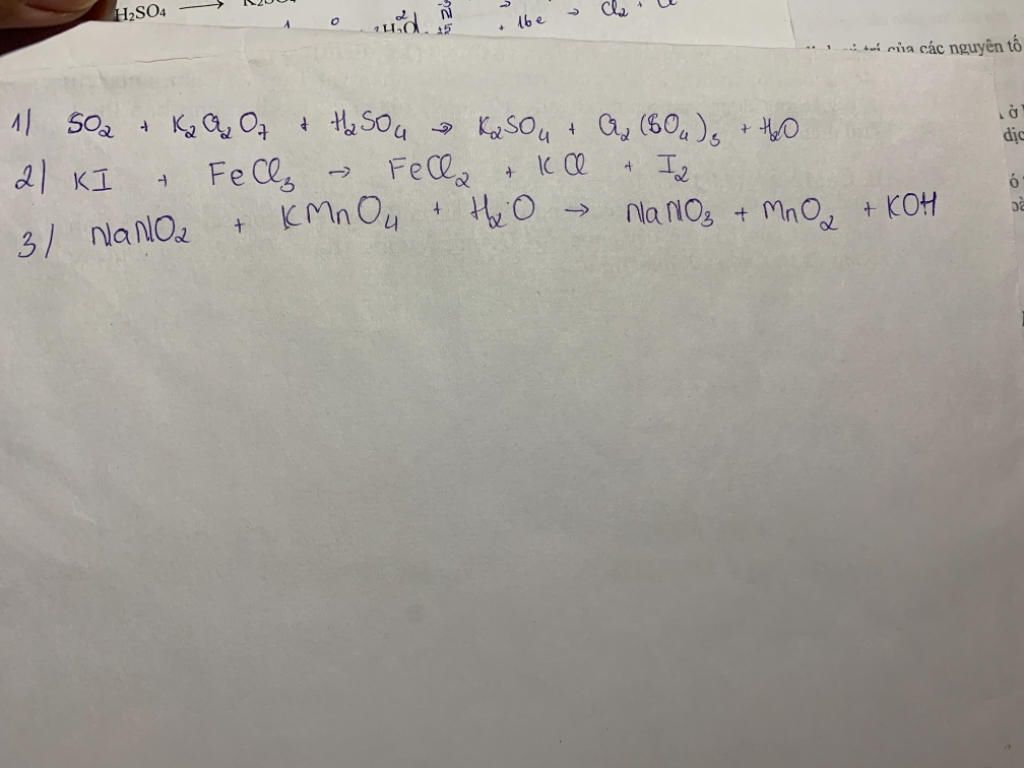 H₂SO₄ ⟶
+ 16e → Cl₂ +
của các nguyên tố
1) SO₂ + K₂Cr₂O₇ + H₂SO₄ → K₂SO₄ + Cr₂(SO₄)₃ + H₂O
2) KI + FeCl₃ → FeCl₂ + KCl + I₂
3) NaNO₂ + KMnO₄ + H₂O → NaNO₃ + MnO₂ + KOH